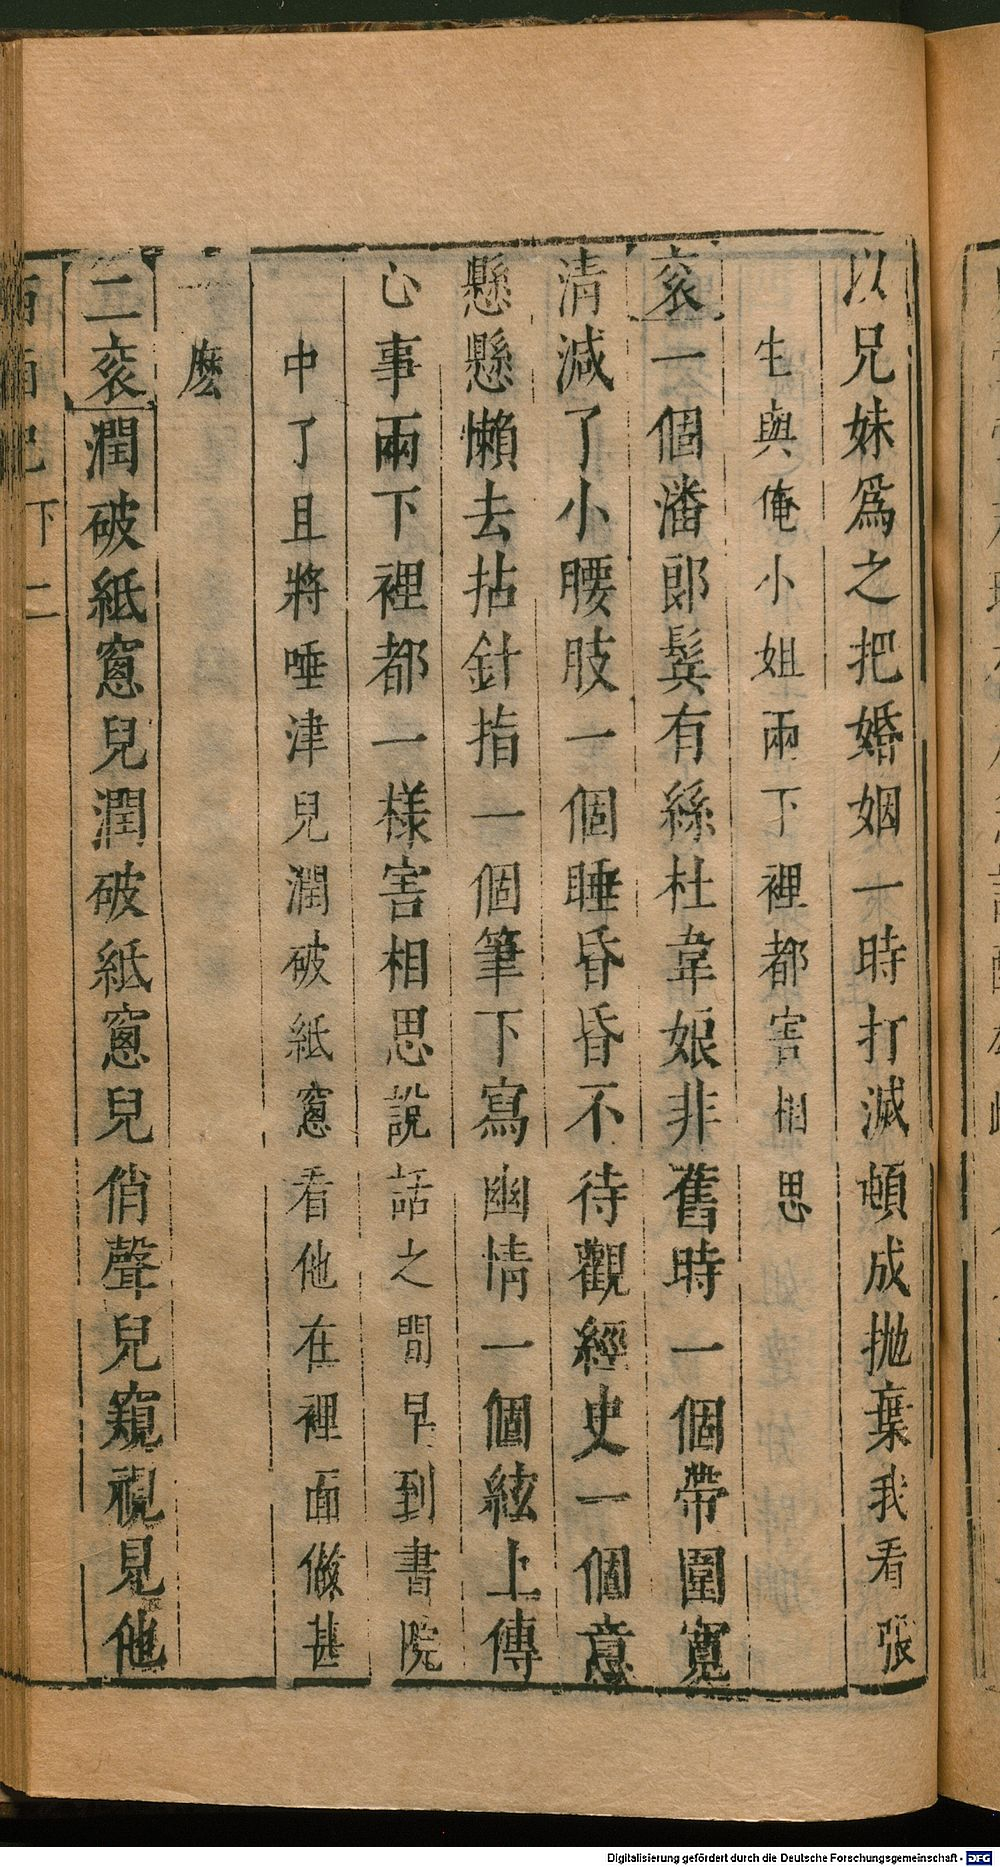 以兄妹爲之把婚姻一時打滅頓成抛棄我看張
生與俺小姐兩下裡都害相思
衮一個潘郎鬂有絲杜韋娘非舊時一個帶圍寬
清減了小腰肢一個睡昏昏不待觀經史一個意
懸懸懶去拈針指一個筆下寫幽情一個絃上傳
心事兩下裡都一樣害相思說話之間早到書院
中了且將唾津兒潤破紙窓看他在裡面做甚
麽
二衮潤破紙窓兒潤破紙窓兒俏聲兒窺視見他
西廂記下 二
Digitalisierung gefördert durch die Deutsche Forschungsgemeinschaft - DFG